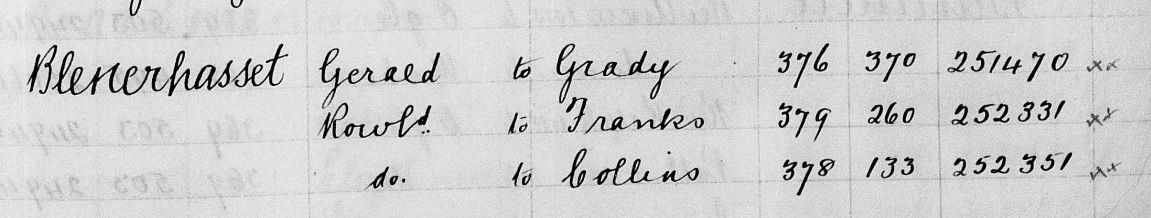 Blenerhasset Gerald to Grady 376 370 251470 xx
Rowld. to Franks 379 260 252331 xx
do. to Collins 378 133 252351 xx